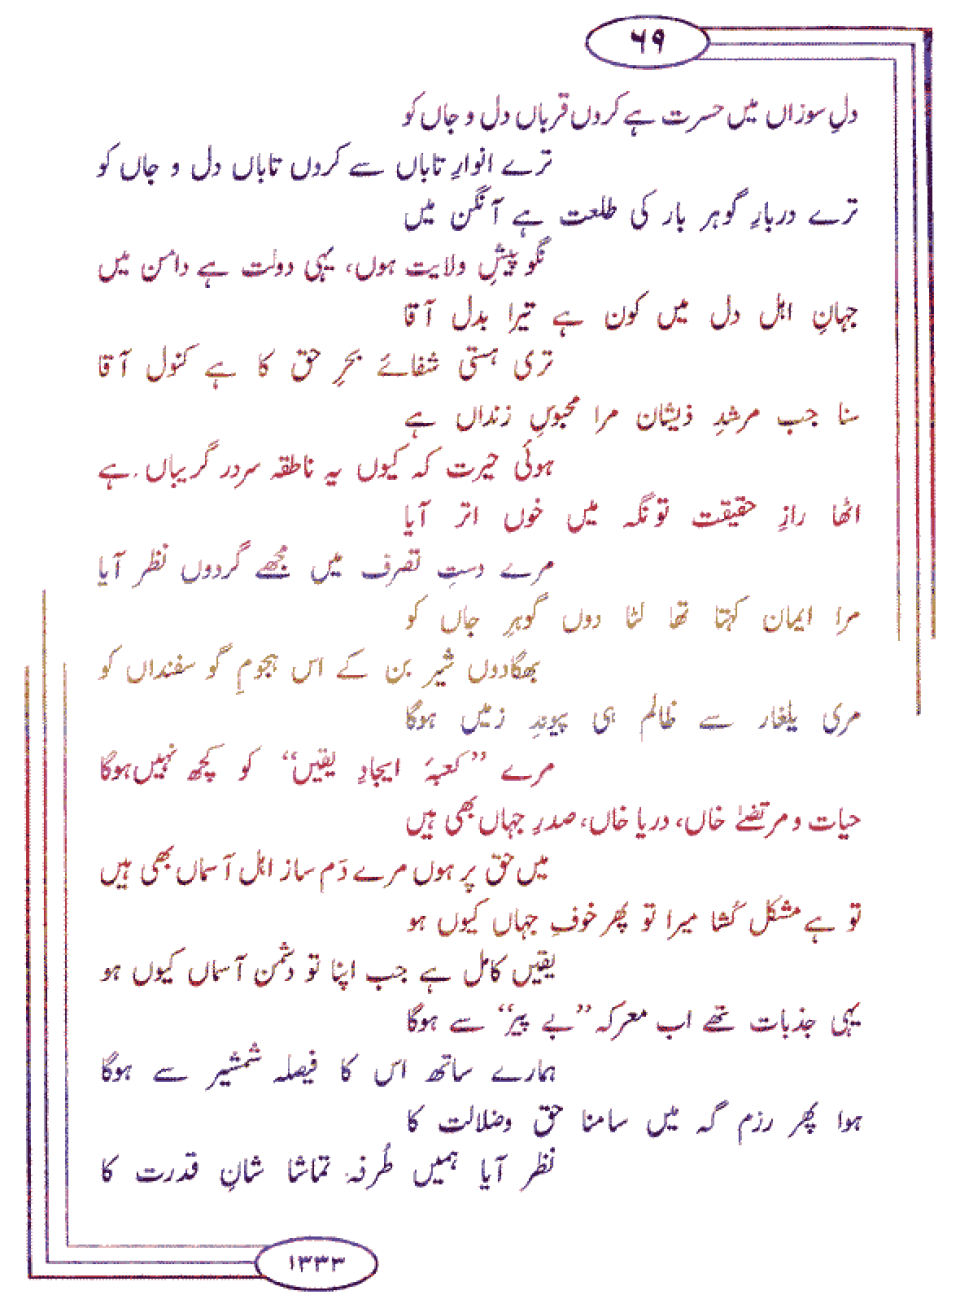 ۶۹
دلِ سوزاں میں حسرت ہے کروں قرباں دل و جاں کو
ترے انوارِ تاباں سے کروں تاباں دل و جاں کو
ترے دربارِ گوہر بار کی طلعت ہے آنگن میں
نگو پیشِ ولایت ہوں، یہی دولت ہے دامن میں
جہانِ اہل دل میں کون ہے تیرا بدل آقا
تری ہستی شفائے بحرِ حق کا ہے کنول آقا
سنا جب مرشدِ ذیشان مرا محبوسِ زنداں ہے
ہوئی حیرت کہ کیوں یہ ناطقہ سردر گریباں ہے
اٹھا رازِ حقیقت تو نگہ میں خوں اتر آیا
مرے دستِ تصرف میں مجھے گردوں نظر آیا
مرا ایمان کہتا تھا لٹا دوں گوہرِ جاں کو
بھگادوں شیر بن کے اس ہجومِ گو سفنداں کو
مری یلغار سے ظالم ہی پیوندِ زمیں ہوگا
مرے ”کعبۂ ایجادِ یقیں“ کو کچھ نہیں ہوگا
حیات و مرتضےٰ خاں، دریا خاں، صدرِ جہاں بھی ہیں
میں حق پر ہوں مرے دَم ساز اہل آسماں بھی ہیں
تو ہے مشکل کُشا میرا تو پھر خوفِ جہاں کیوں ہو
یقیں کامل ہے جب اپنا تو دشمن آسماں کیوں ہو
یہی جذبات تھے اب معرکہ ”بے پیر“ سے ہوگا
ہمارے ساتھ اس کا فیصلہ شمشیر سے ہوگا
ہوا پھر رزم گہ میں سامنا حق وضلالت کا
نظر آیا ہمیں طُرفہ تماشا شانِ قدرت کا
۱۳۳۳